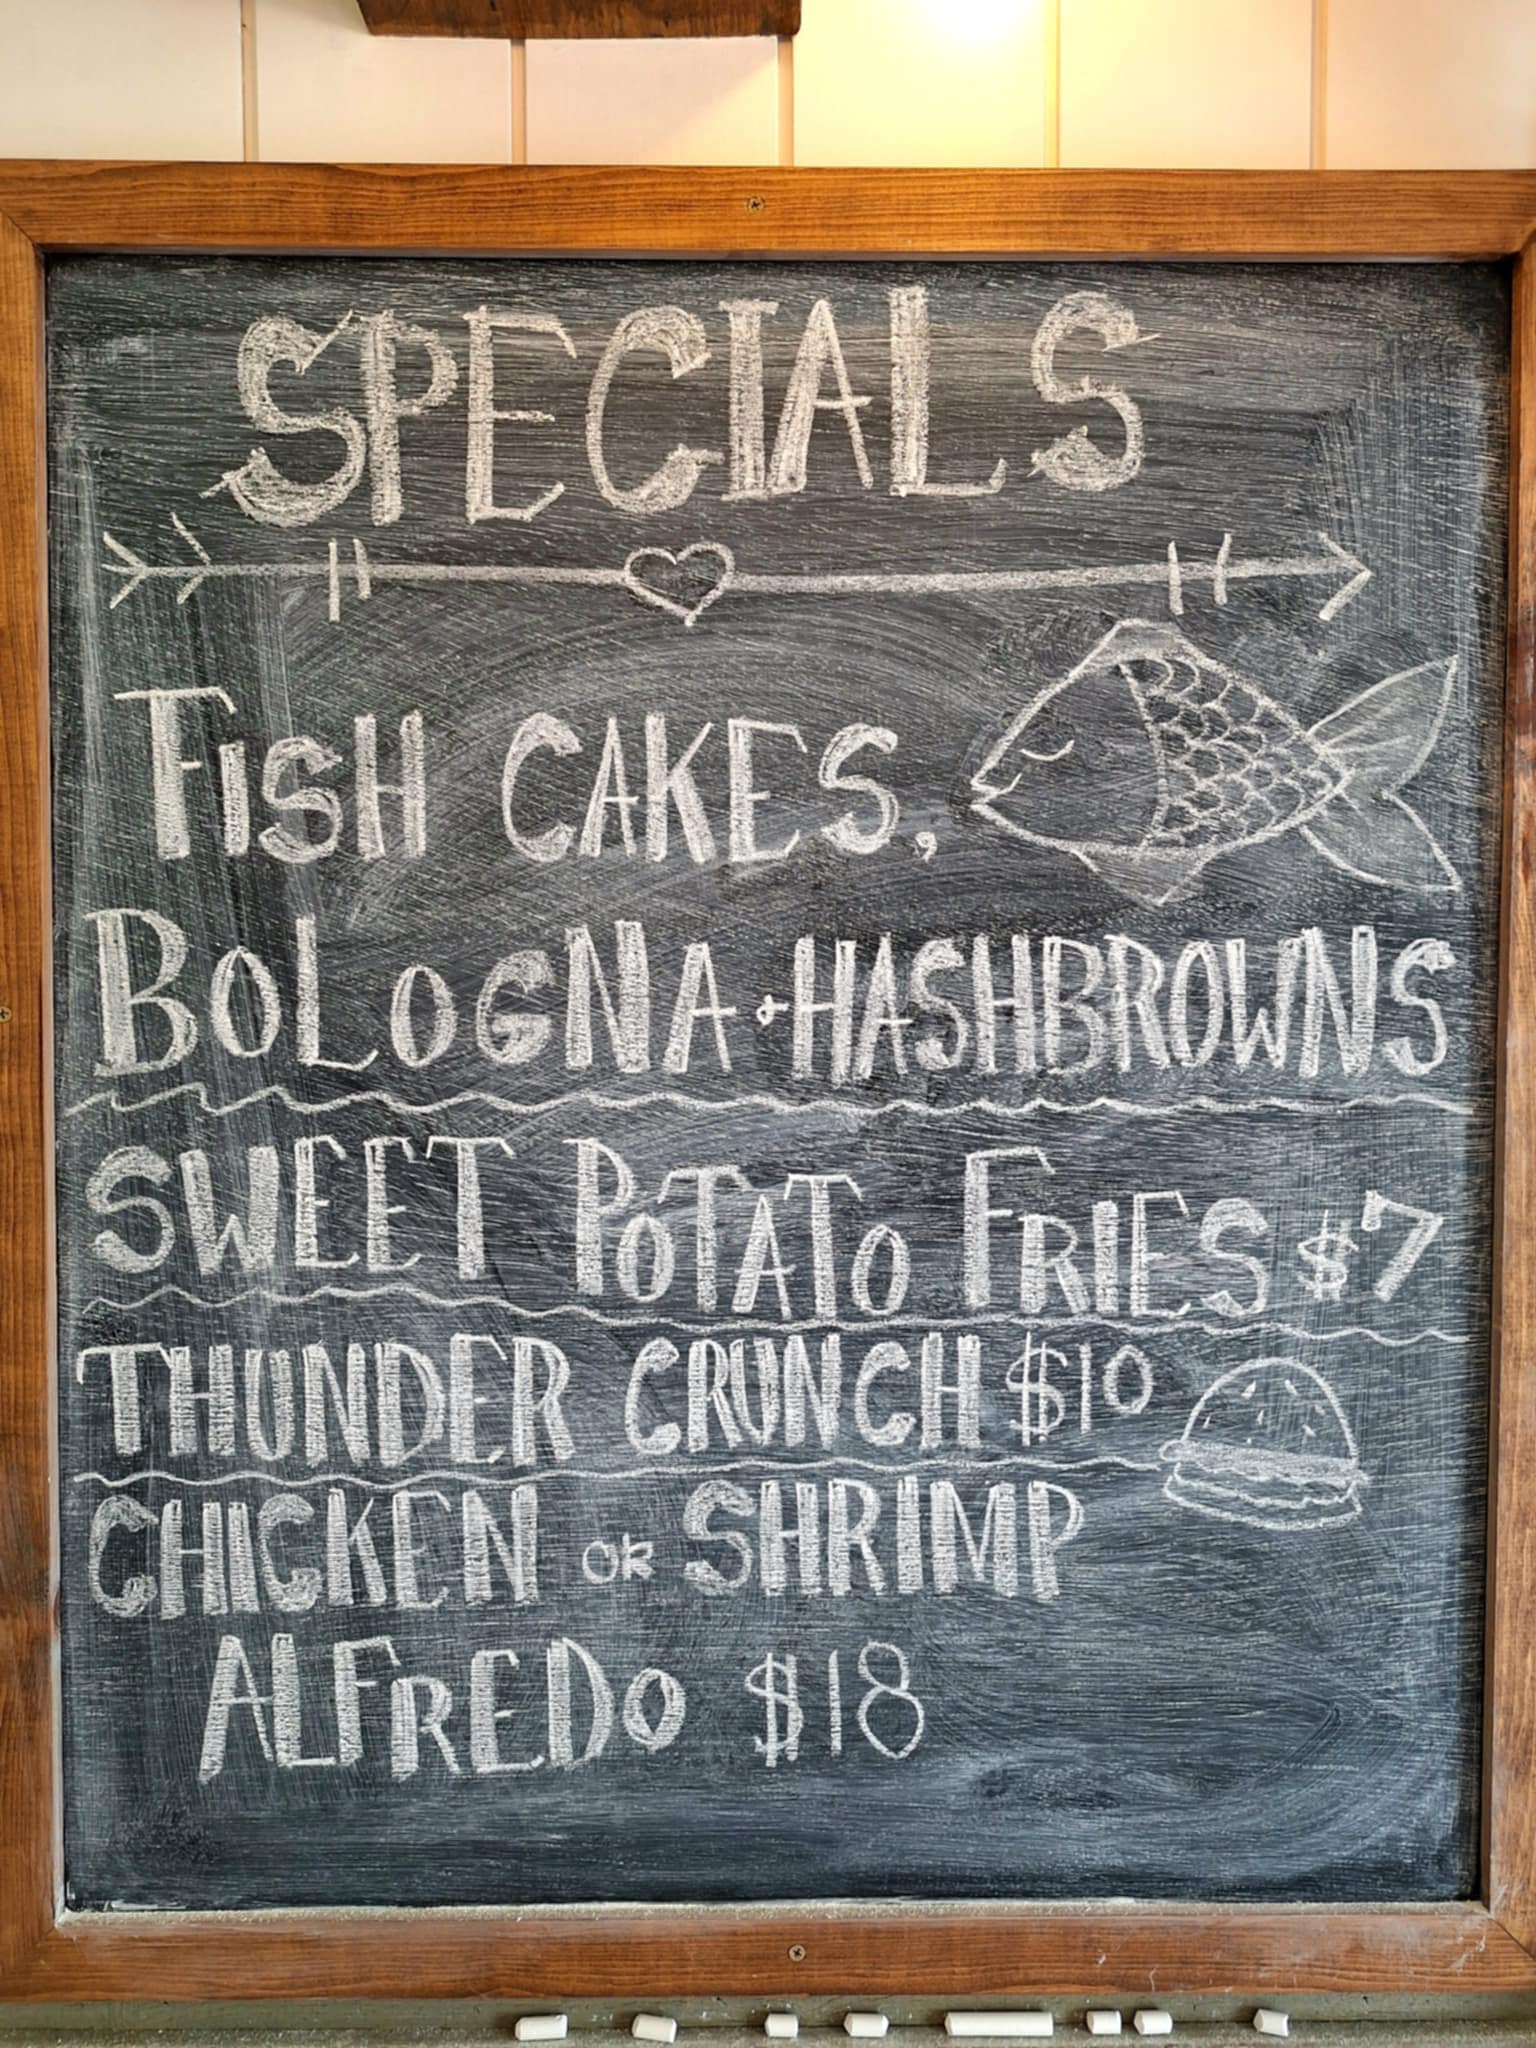 SPECIALS
FISH CAKES,
BOLOGNA & HASHBROWNS
SWEET POTATO FRIES $7
THUNDER CRUNCH $10
CHICKEN OR SHRIMP
ALFREDO $18